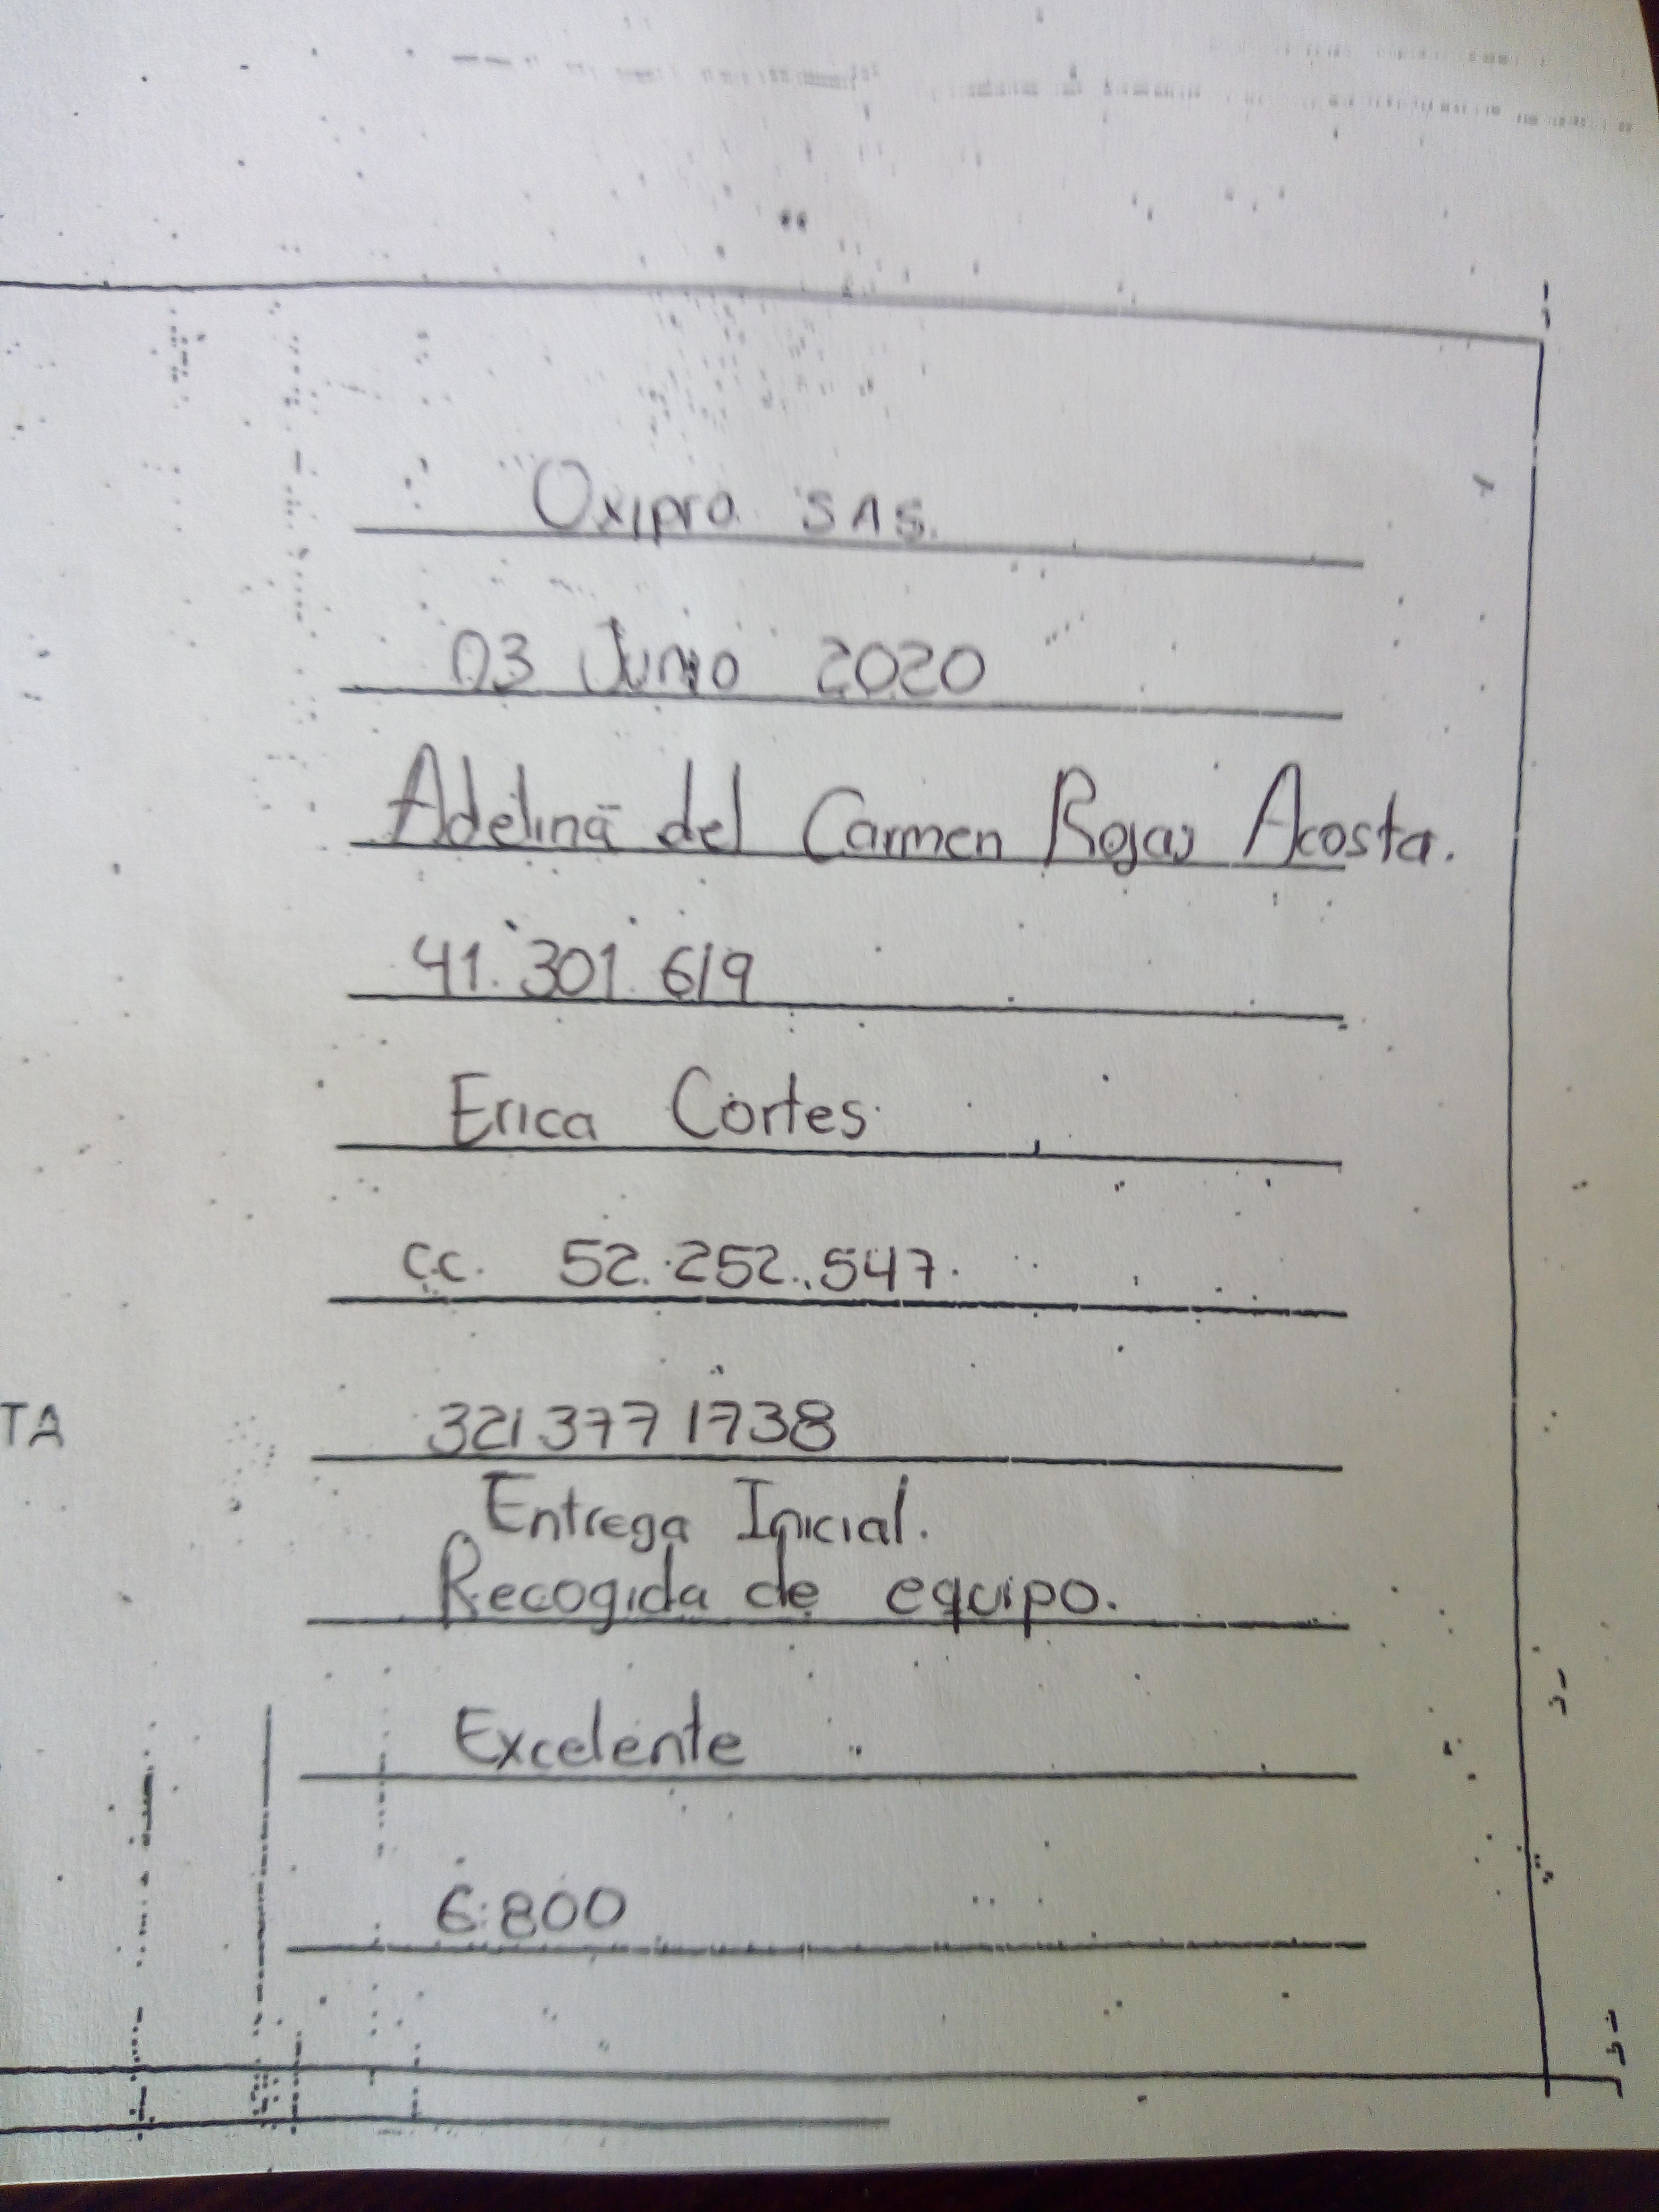 Oxipro SAS.
03 Junio 2020
Adelina del Carmen Rojas Acosta.
41.301.619
Erica Cortes
C.C. 52.252.547.
TA 321 377 1738
Entrega Inicial.
Recogida de equipo.
Excelente
6.800